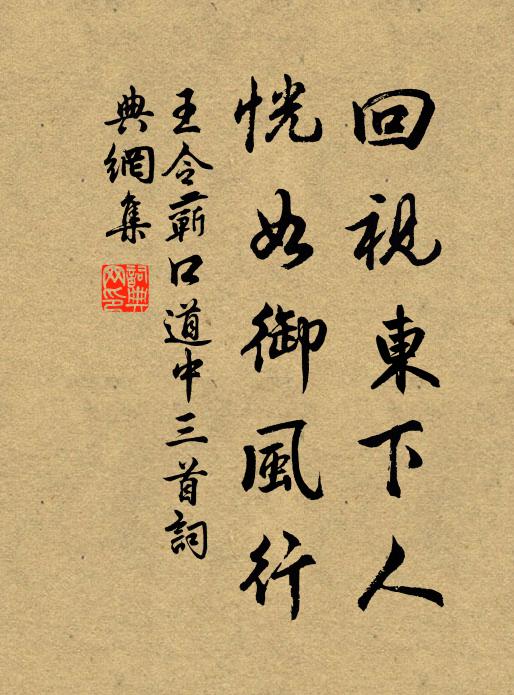 回視東下人
恍如御風行
王令蘄口道中三首詞
典網集
詞典网印